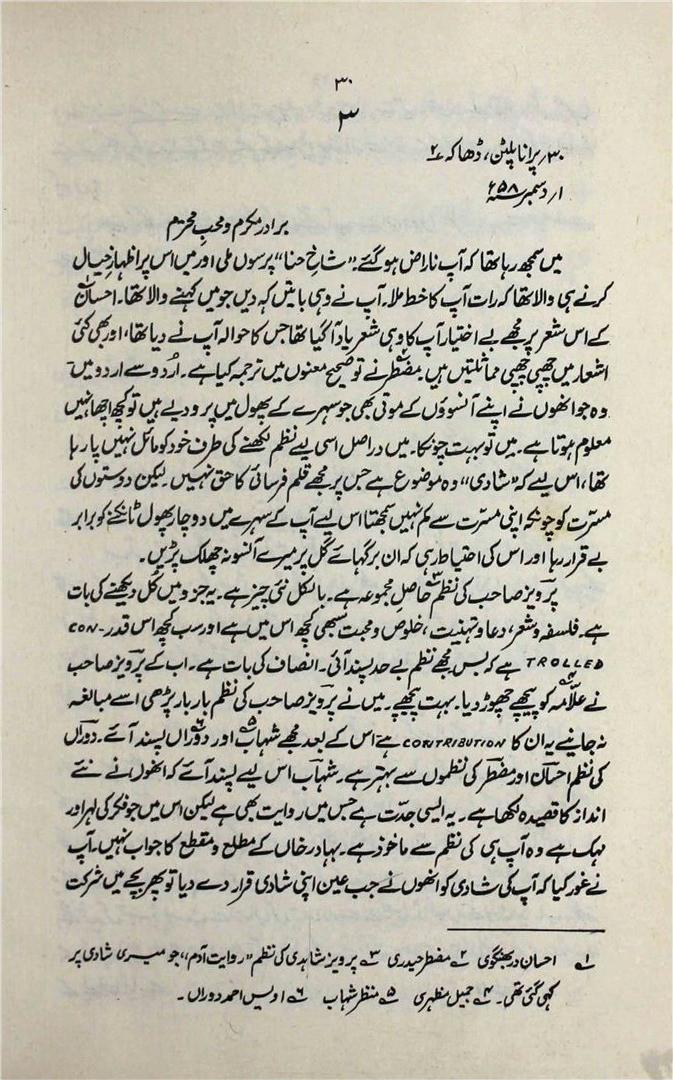 ۳۰
۳
۳۰؍ پرانا پلٹن، ڈھاکہ ۲
۱؍ دسمبر سنہ ۵۸ء
برادر مکرم و محب محترم
میں سمجھ رہا تھا کہ آپ ناراض ہو گئے۔ "شاخ حنا" پرسوں ملی اور میں اس پر اظہارِ خیال
کرنے ہی والا تھا کہ رات آپ کا خط ملا۔ آپ نے وہی باتیں کہہ دیں جو میں کہنے والا تھا۔ احسانؔ۱
کے اس شعر پر مجھے بے اختیار آپ کا وہی شعر یاد آ گیا تھا جس کا حوالہ آپ نے دیا تھا، اور بھی کئی
اشعار میں چھپی چھپی مماثلتیں ہیں۔ مضطرؔ۲ نے تو صحیح معنوں میں ترجمہ کیا ہے۔ اُردو سے اردو میں۔
وہ جو انھوں نے اپنے آنسوؤں کے موتی بھی جو سہرے کے پھول میں پرو دیے ہیں تو کچھ اچھا نہیں
معلوم ہوتا ہے۔ میں تو بہت چونکا۔ میں دراصل اسی لیے نظم لکھنے کی طرف خود کو مائل نہیں پا رہا
تھا، اس لیے کہ "شادی" وہ موضوع ہے جس پر مجھے قلم فرسائی کا حق نہیں۔ لیکن دوستوں کی
مسرّت کو چونکہ اپنی مسرّت سے کم نہیں سمجھتا اس لیے آپ کے سہرے میں دو چار پھول ٹانکنے کو برابر
بے قرار رہا اور اس کی احتیاط رہی کہ ان برگہائے گل پر میرے آنسو نہ چھلک پڑیں۔
پرویز صاحب کی نظم۳ حاصلِ مجموعہ ہے۔ بالکل نئی چیز ہے۔ یہ جزو میں کُل دیکھنے کی بات
ہے۔ فلسفہ و شعر، دعا و تہنیت، خلوص و محبت سبھی کچھ اس میں ہے اور سب کچھ اس قدر CON-
TROLLED ہے کہ بس مجھے نظم بے حد پسند آئی۔ انصاف کی بات ہے۔ اب کے پرویز صاحب
نے علّامہ۴ کو پیچھے چھوڑ دیا۔ بہت پیچھے۔ میں نے پرویز صاحب کی نظم بار بار پڑھی اسے مبالغہ
نہ جانیے یہ ان کا CONTRIBUTION ہے اس کے بعد مجھے شہابؔ۵ اور دوراںؔ۶ پسند آئے۔ دوراںؔ
کی نظم احسانؔ اور مضطرؔ کی نظموں سے بہتر ہے۔ شہابؔ اس لیے پسند آئے کہ انھوں نے نئے
انداز کا قصیدہ لکھا ہے۔ یہ ایسی جدّت ہے جس میں روایت بھی ہے لیکن اس میں جو فکر کی لہر اور
لہک ہے وہ آپ ہی کی نظم سے ماخوذ ہے۔ بہادر خاں کے مطلع و مقطع کا جواب نہیں۔ آپ
نے غور کیا کہ آپ کی شادی کو انھوں نے جب عین اپنی شادی قرار دے دیا تو پھر بچے میں شرکت
۱؎ احسان دربھنگوی ۲؎ مضطر حیدری ۳؎ پرویز شاہدی کی نظم "روایت آدم"، جو میری شادی پر
کہی گئی تھی۔ ۴؎ جمیل مظہری ۵؎ منظر شہاب ۶؎ اویس احمد دوراں۔